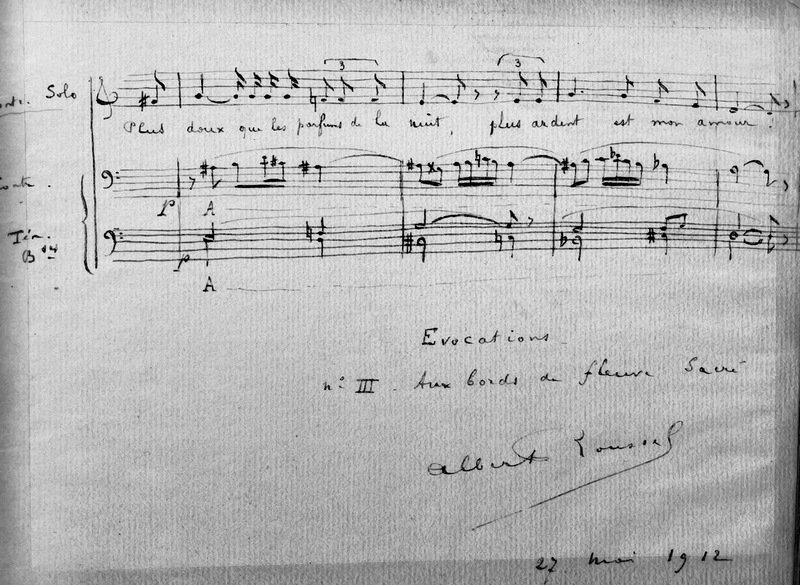 Solo
Plus doux que les parfums de la nuit, plus ardent est mon amour !
P A
Tén.
p
A
Evocations
n° III. Aux bords du fleuve Sacré
Albert Roussel
27 mai 1912